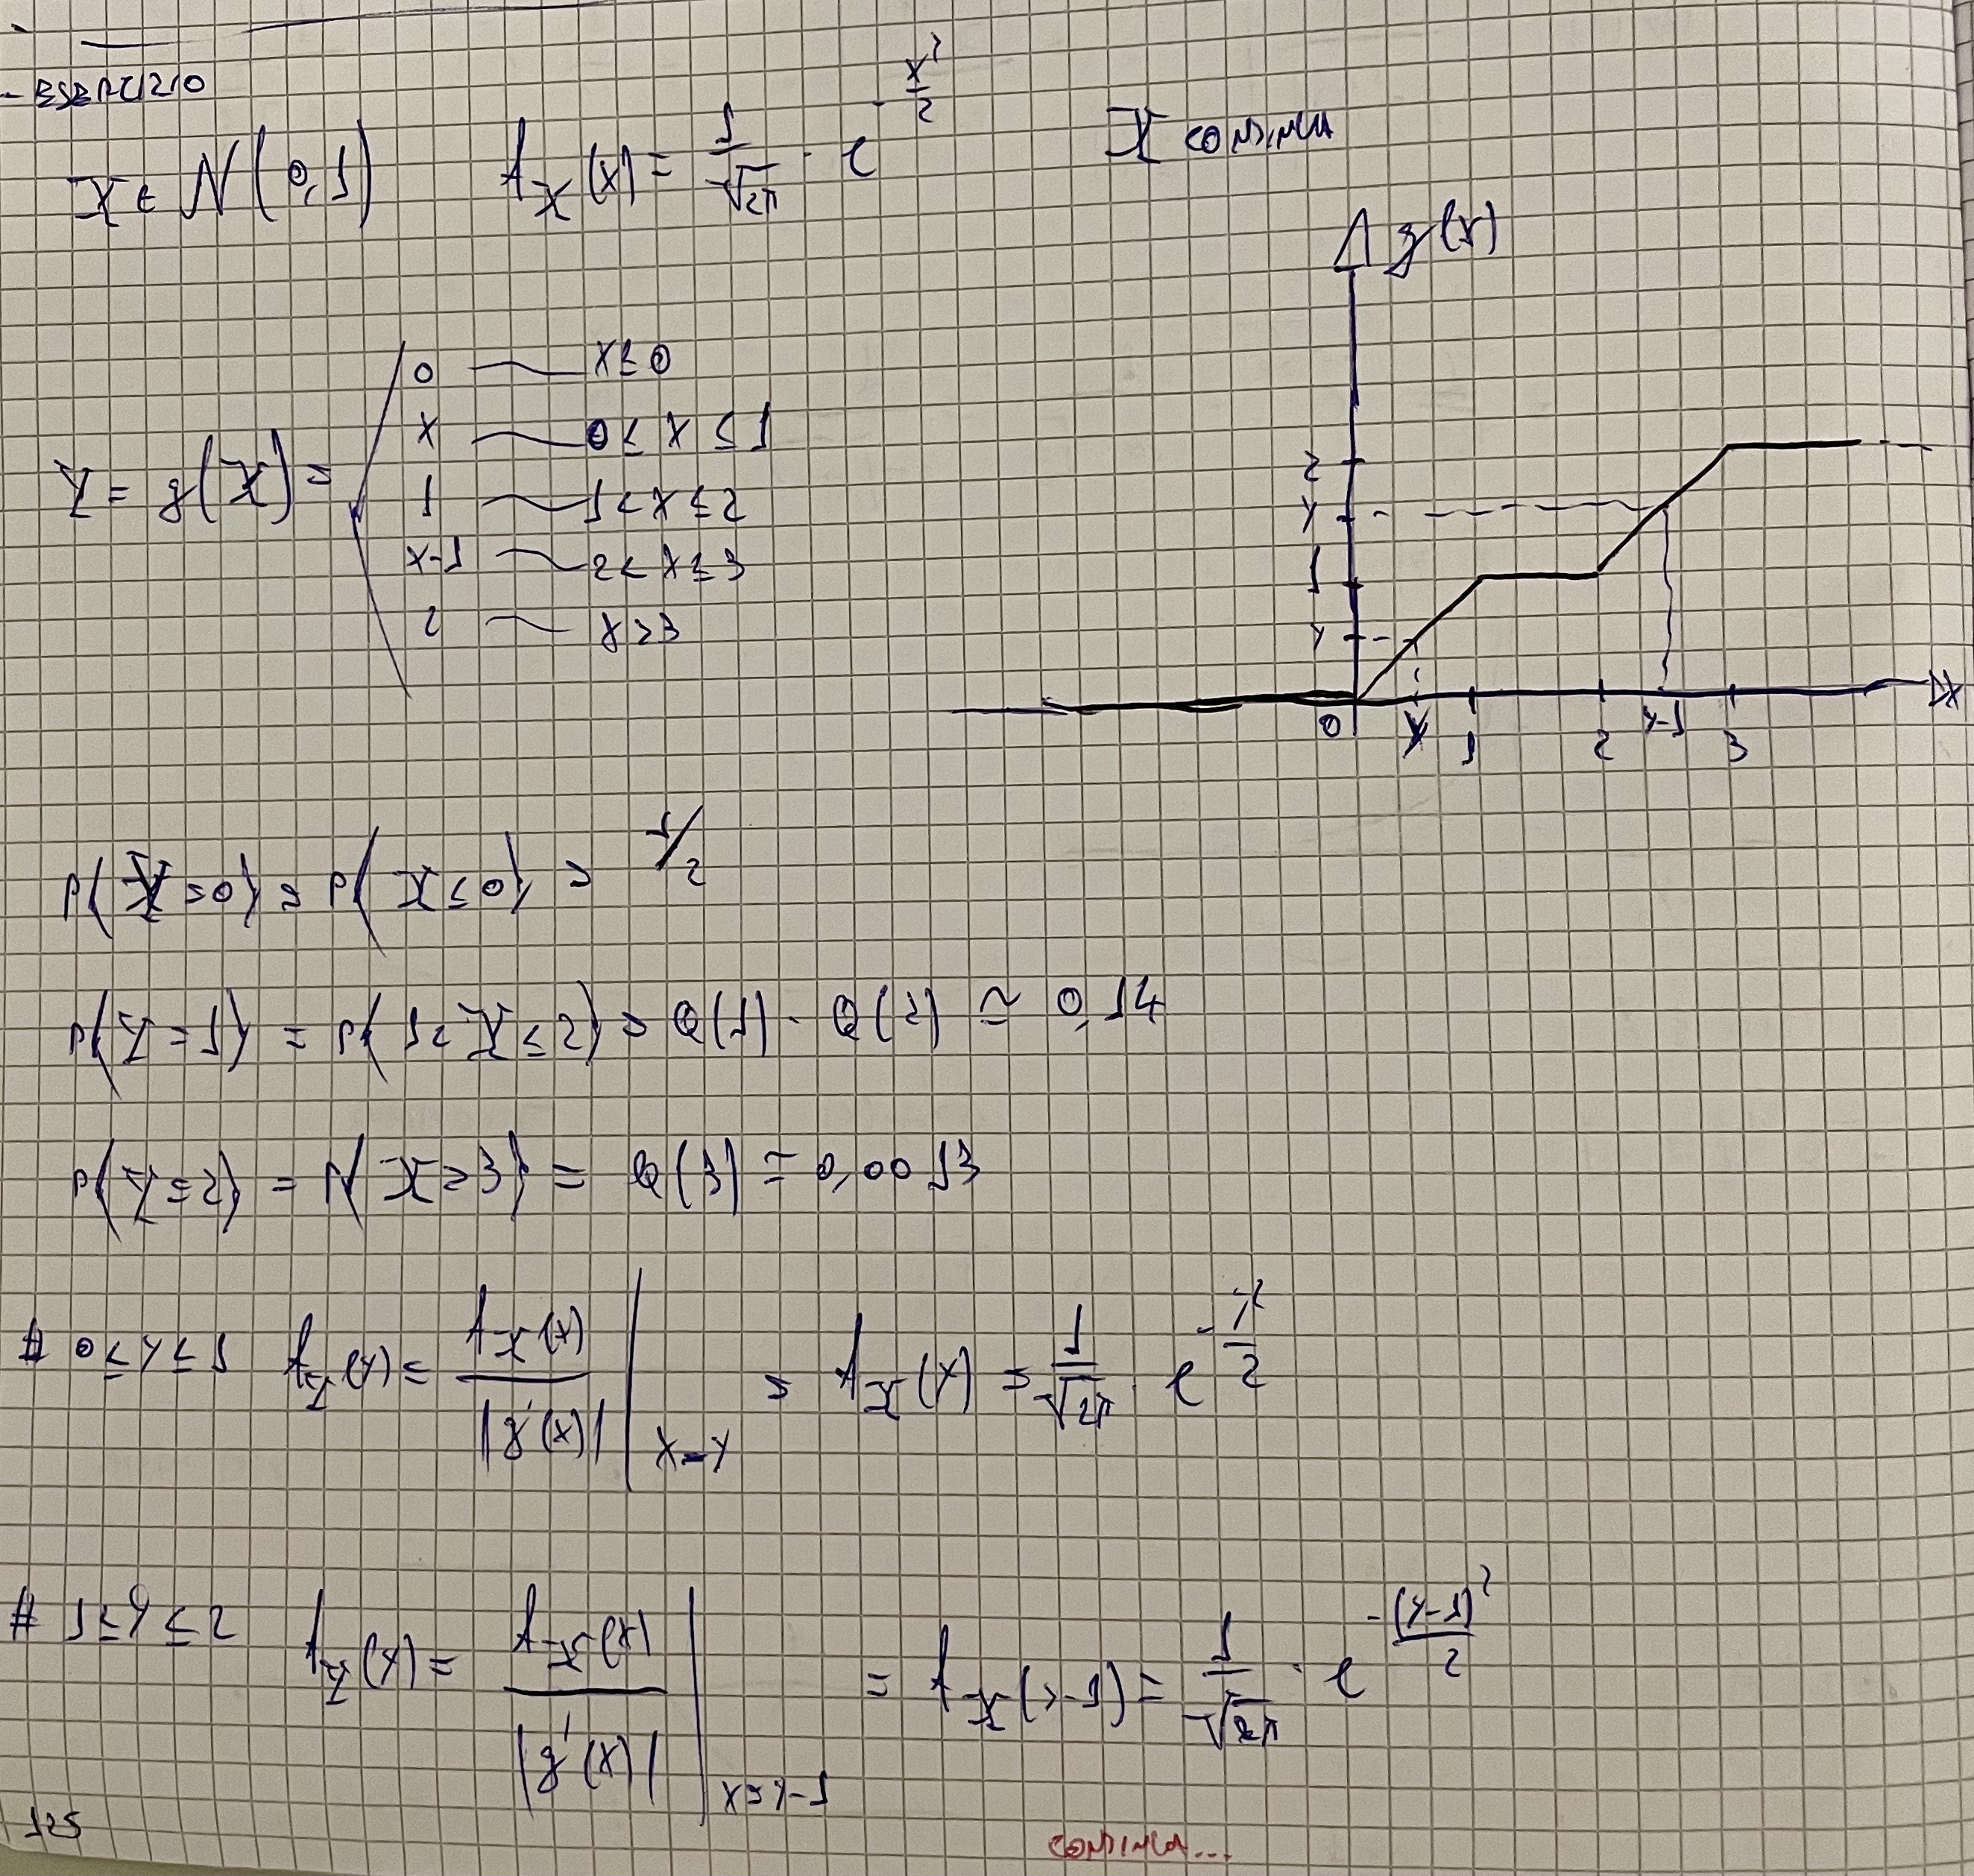 - ESERCIZIO
X ∈ N(0,1) f_X(x) = 1/√2π · e^(-x²/2) X CONTINUA
g(x)
Y = g(X) =
0 — x ≤ 0
x — 0 < x ≤ 1
1 — 1 < x ≤ 2
x-1 — 2 < x ≤ 3
2 — x > 3
2
y
1
y
0 y 1 2 y-1 3 x
P(Y=0) = P(X ≤ 0) = 1/2
P{Y=1} = P{1 < X ≤ 2} = Q(1) - Q(2) ≃ 0,14
P{Y=2} = P{X > 3} = Q(3) ≃ 0,0013
# 0 ≤ y ≤ 1 f_Y(y) = f_X(x) / |g'(x)| |x=y = f_X(y) = 1/√2π · e^(-y²/2)
# 1 ≤ y ≤ 2 f_Y(y) = f_X(x) / |g'(x)| |x=y-1 = f_X(y-1) = 1/√2π · e^(-(y-1)²/2)
125
CONTINUA...